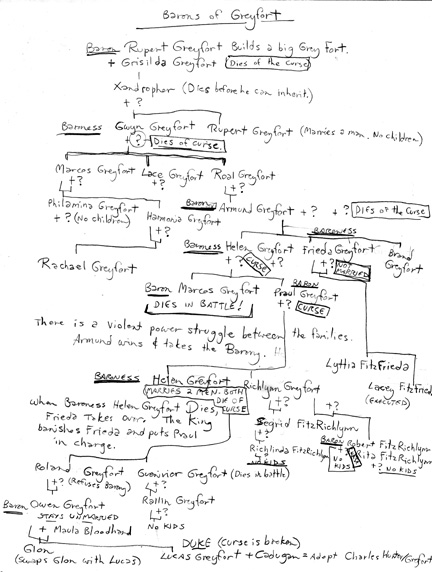 Barons of Greyfort
Baron Rupert Greyfort Builds a big Grey Fort.
+ Grisilda Greyfort (Dies of the Curse)
Xandropher (Dies before he can inherit.)
+ ?
Baroness Gwyn Greyfort Rupert Greyfort (Marries a man. No children)
+ ? Dies of Curse.
Marcos Greyfort Lace Greyfort Roal Greyfort
+? +? +?
Philamina Greyfort Harmonia Greyfort Baron Armund Greyfort +? +? Dies of the Curse
+? (No children) +?
Baroness
Baroness Helen Greyfort Frieda Greyfort Brand Greyfort
+? +? Curse +? Not Married
Rachael Greyfort
Baron Marcos Greyfort Baron Praul Greyfort
Dies in Battle! +? Curse
There is a violent power struggle between the families.
Armund wins & takes the Barony.
Lythia FitzFrieda
Baroness Helen Greyfort Richlynn Greyfort Lacey FitzFrieda
Marries 2 men. Both Die of Curse +? +? (Executed)
When Baroness Helen Greyfort Dies,
Frieda Takes over. The King
banishes Frieda and puts Praul
in charge.
Segrid FitzRichlynn Baron Robert FitzRichlynn
+? +? No Kids
Richlinda FitzRichlynn Rita FitzRichlynn
No Kids +? No Kids
Roland Greyfort Guenivior Greyfort (Dies in battle)
+? (Refuses Barony) +?
Baron Owen Greyfort Rallin Greyfort
Stays Unmarried +?
+ Maula Bloodhand No Kids
Glon Duke (Curse is broken)
(Swaps Glon with Lucas) Lucas Greyfort + Cadugan = Adopt Charles Hunter/Greyfort